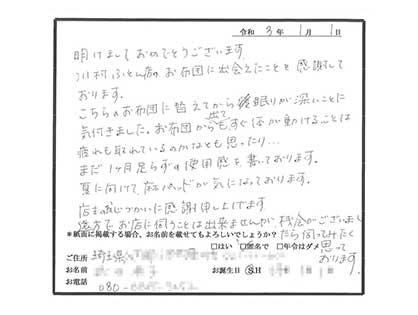 令和 3年 1月 1日
明けましておめでとうございます。
川村ふとん店のお布団に出会えたことを感謝して
おります。
こちらのお布団に替えてから後眠りが深いことに
気付きました。お布団から出てもすぐ体が動けることは
疲れも取れているのかなとも思ったり…
まだ1ヶ月足らずの使用感を書いております。
夏に向けて、麻パッドが気になっております。
店主のお心づかいに感謝申し上げます
遠方で、お店に伺うことは出来ませんが、機会がございまし
たら伺ってみたく
思って
おります。
*紙面に掲載する場合、お名前を載せてもよろしいでしょうか?
□はい □匿名で □年令はダメ
ご住所 埼玉県
お名前
お誕生日 S.H 年 月 日
お電話 080-